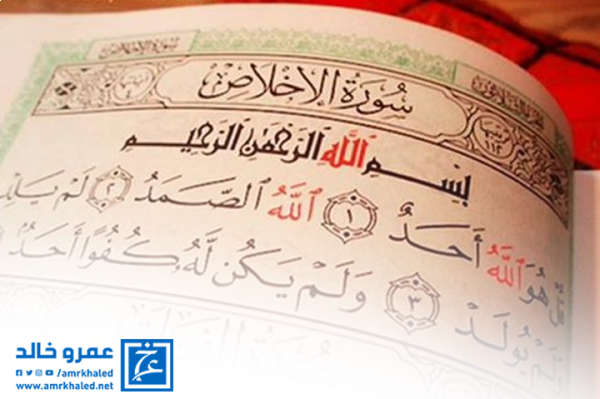 سُورَةُ الإِخْلَاصِ
بِسْمِ اللَّهِ الرَّحْمَٰنِ الرَّحِيمِ
هُوَ اللَّهُ أَحَدٌ ١ اللَّهُ الصَّمَدُ ٢ لَمْ يَلِدْ
لَمْ يُولَدْ ٣ وَلَمْ يَكُن لَّهُ كُفُوًا أَحَدٌ
عمرو خالد
/amrkhaled
www.amrkhaled.net